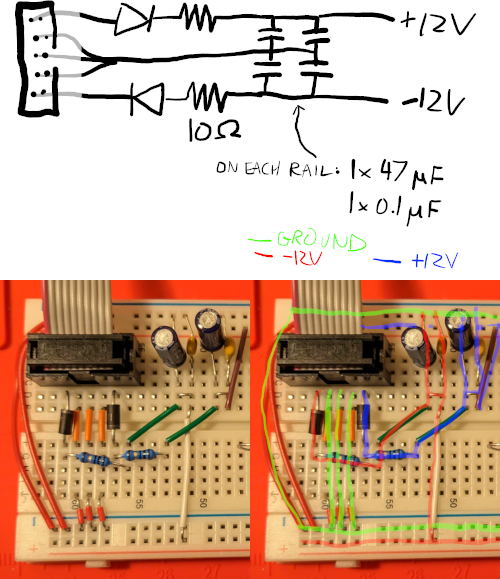 +12V
-12V
10Ω
ON EACH RAIL: 1x 47 μF
1x 0.1 μF
— GROUND
— -12V — +12V
60
55
50
60
55
50
26 27